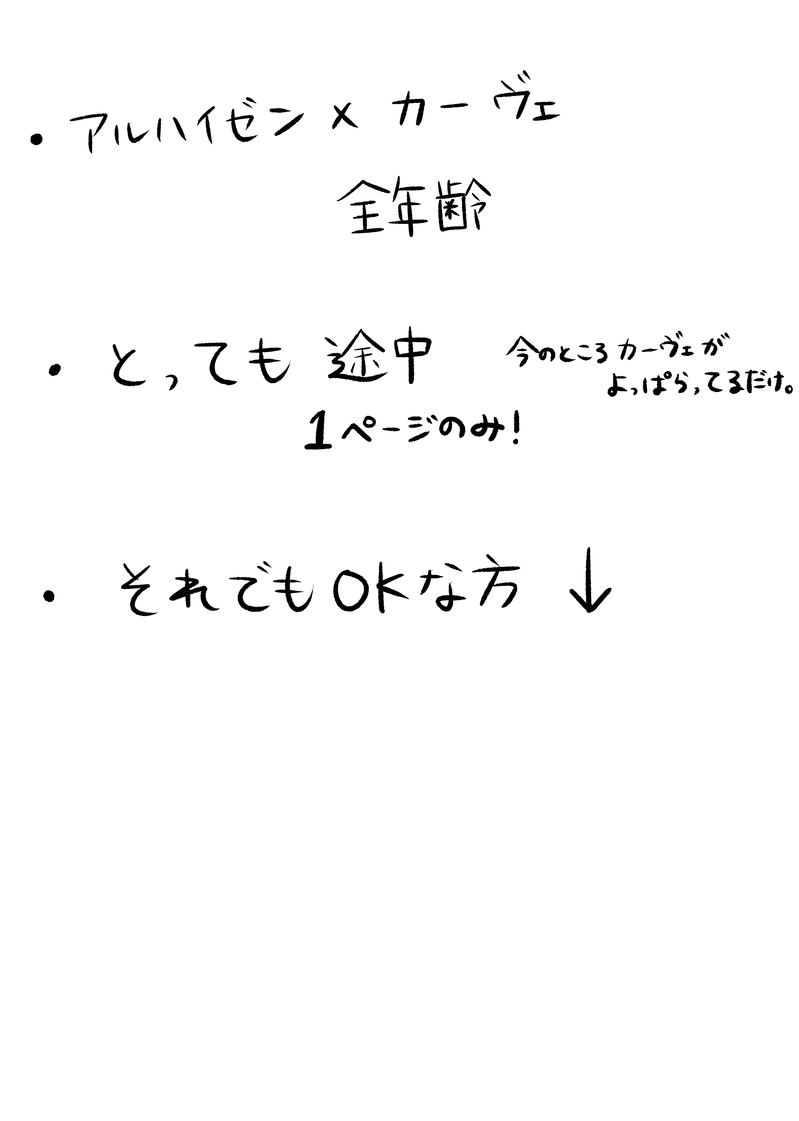 ・アルハイゼン×カーヴェ
全年齢
・とっても途中
今のところカーヴェが
よっぱらってるだけ。
1ページのみ!
・それでもOKな方↓